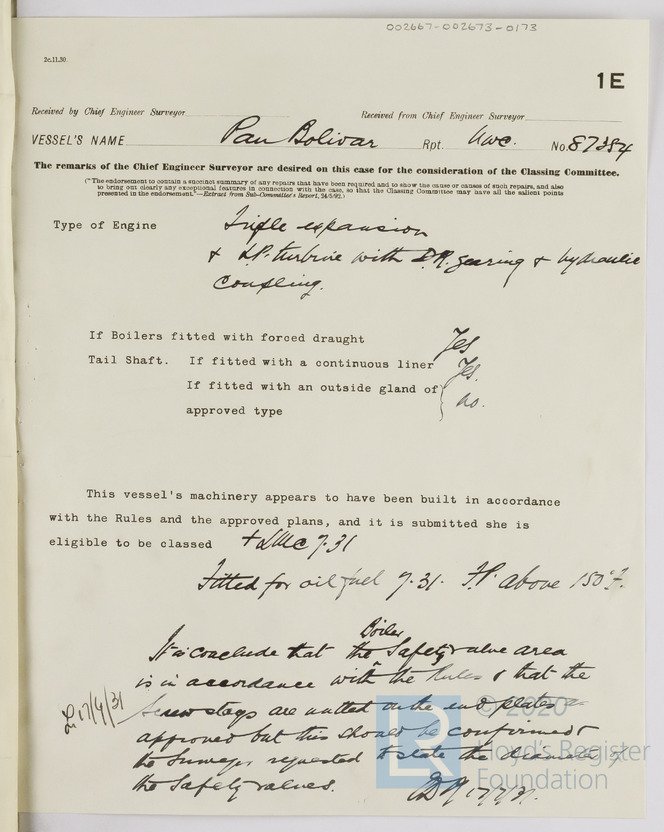 002667-002673-0173
2c.11.30.
1E
Received by Chief Engineer Surveyor
Received from Chief Engineer Surveyor
VESSEL'S NAME Pan Bolivar Rpt. Nwc. No. 87384
The remarks of the Chief Engineer Surveyor are desired on this case for the consideration of the Classing Committee.
("The endorsement to contain a succinct summary of any repairs that have been required and to show the cause or causes of such repairs, and also
to bring out clearly any exceptional features in connection with the case, so that the Classing Committee may have all the salient points
presented in the endorsement."—Extract from Sub-Committee's Report, 24/5/92.)
Type of Engine Triple expansion
& L.P. turbine with D.R. gearing & hydraulic
coupling.
If Boilers fitted with forced draught Yes
Tail Shaft. If fitted with a continuous liner Yes.
If fitted with an outside gland of
approved type no.
This vessel's machinery appears to have been built in accordance
with the Rules and the approved plans, and it is submitted she is
eligible to be classed + LMC 7.31
Fitted for oil fuel 7.31. F.P. above 150°F.
It is conclude that the Boiler Safety valve area
is in accordance with the Rules & that the
Screw stays are nutted on the end plates as
approved but this should be confirmed &
the Surveyor requested to state the diameter of
the Safety valves.
17/7/31
17/7/31.
© 2020
Lloyd's Register
Foundation
LR